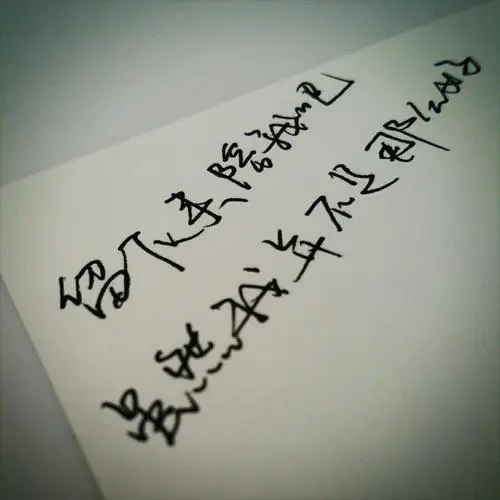 留下来陪着我吧
虽然我并不是那么好